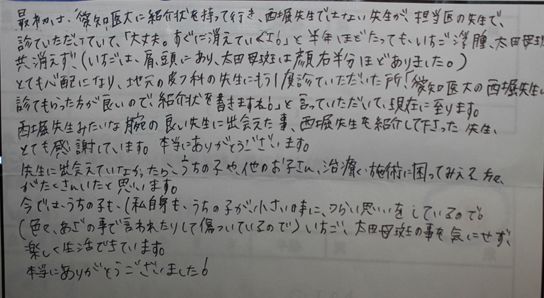 最初は、愛知医大に紹介状を持って行き、西堀先生ではない先生が、担当医の先生で、
診ていただいていて、「大丈夫。すぐに消えていくよ。」と半年ほどたっても、いちご 腫、太田母斑
共消えず(いちごは、肩、頭にあり、太田母斑は顔右半分ほどありました。)
とても心配になり、地元の皮フ科の先生にもう1度診ていただいた所、「愛知医大の西堀先生に
診てもらった方が良いので紹介状を書きますね。」と言っていただいて、現在に至ります。
西堀先生みたいな腕の良い先生に出会えた事、西堀先生を紹介して下さった先生、
とても感謝しています。本当にありがとうございます。
先生に出会えていなかったら、うちの子や、他のお子さん、治療、施術に困ってみえる方々
がたくさんいたと思います。
今では、うちの子も、(私自身も、うちの子が、小さい時に、つらい思いをしているので。
(色々、あざの事で言われたりして傷ついているので)いちご、太田母斑の事を気にせず、
楽しく生活できています。
本当にありがとうございました。